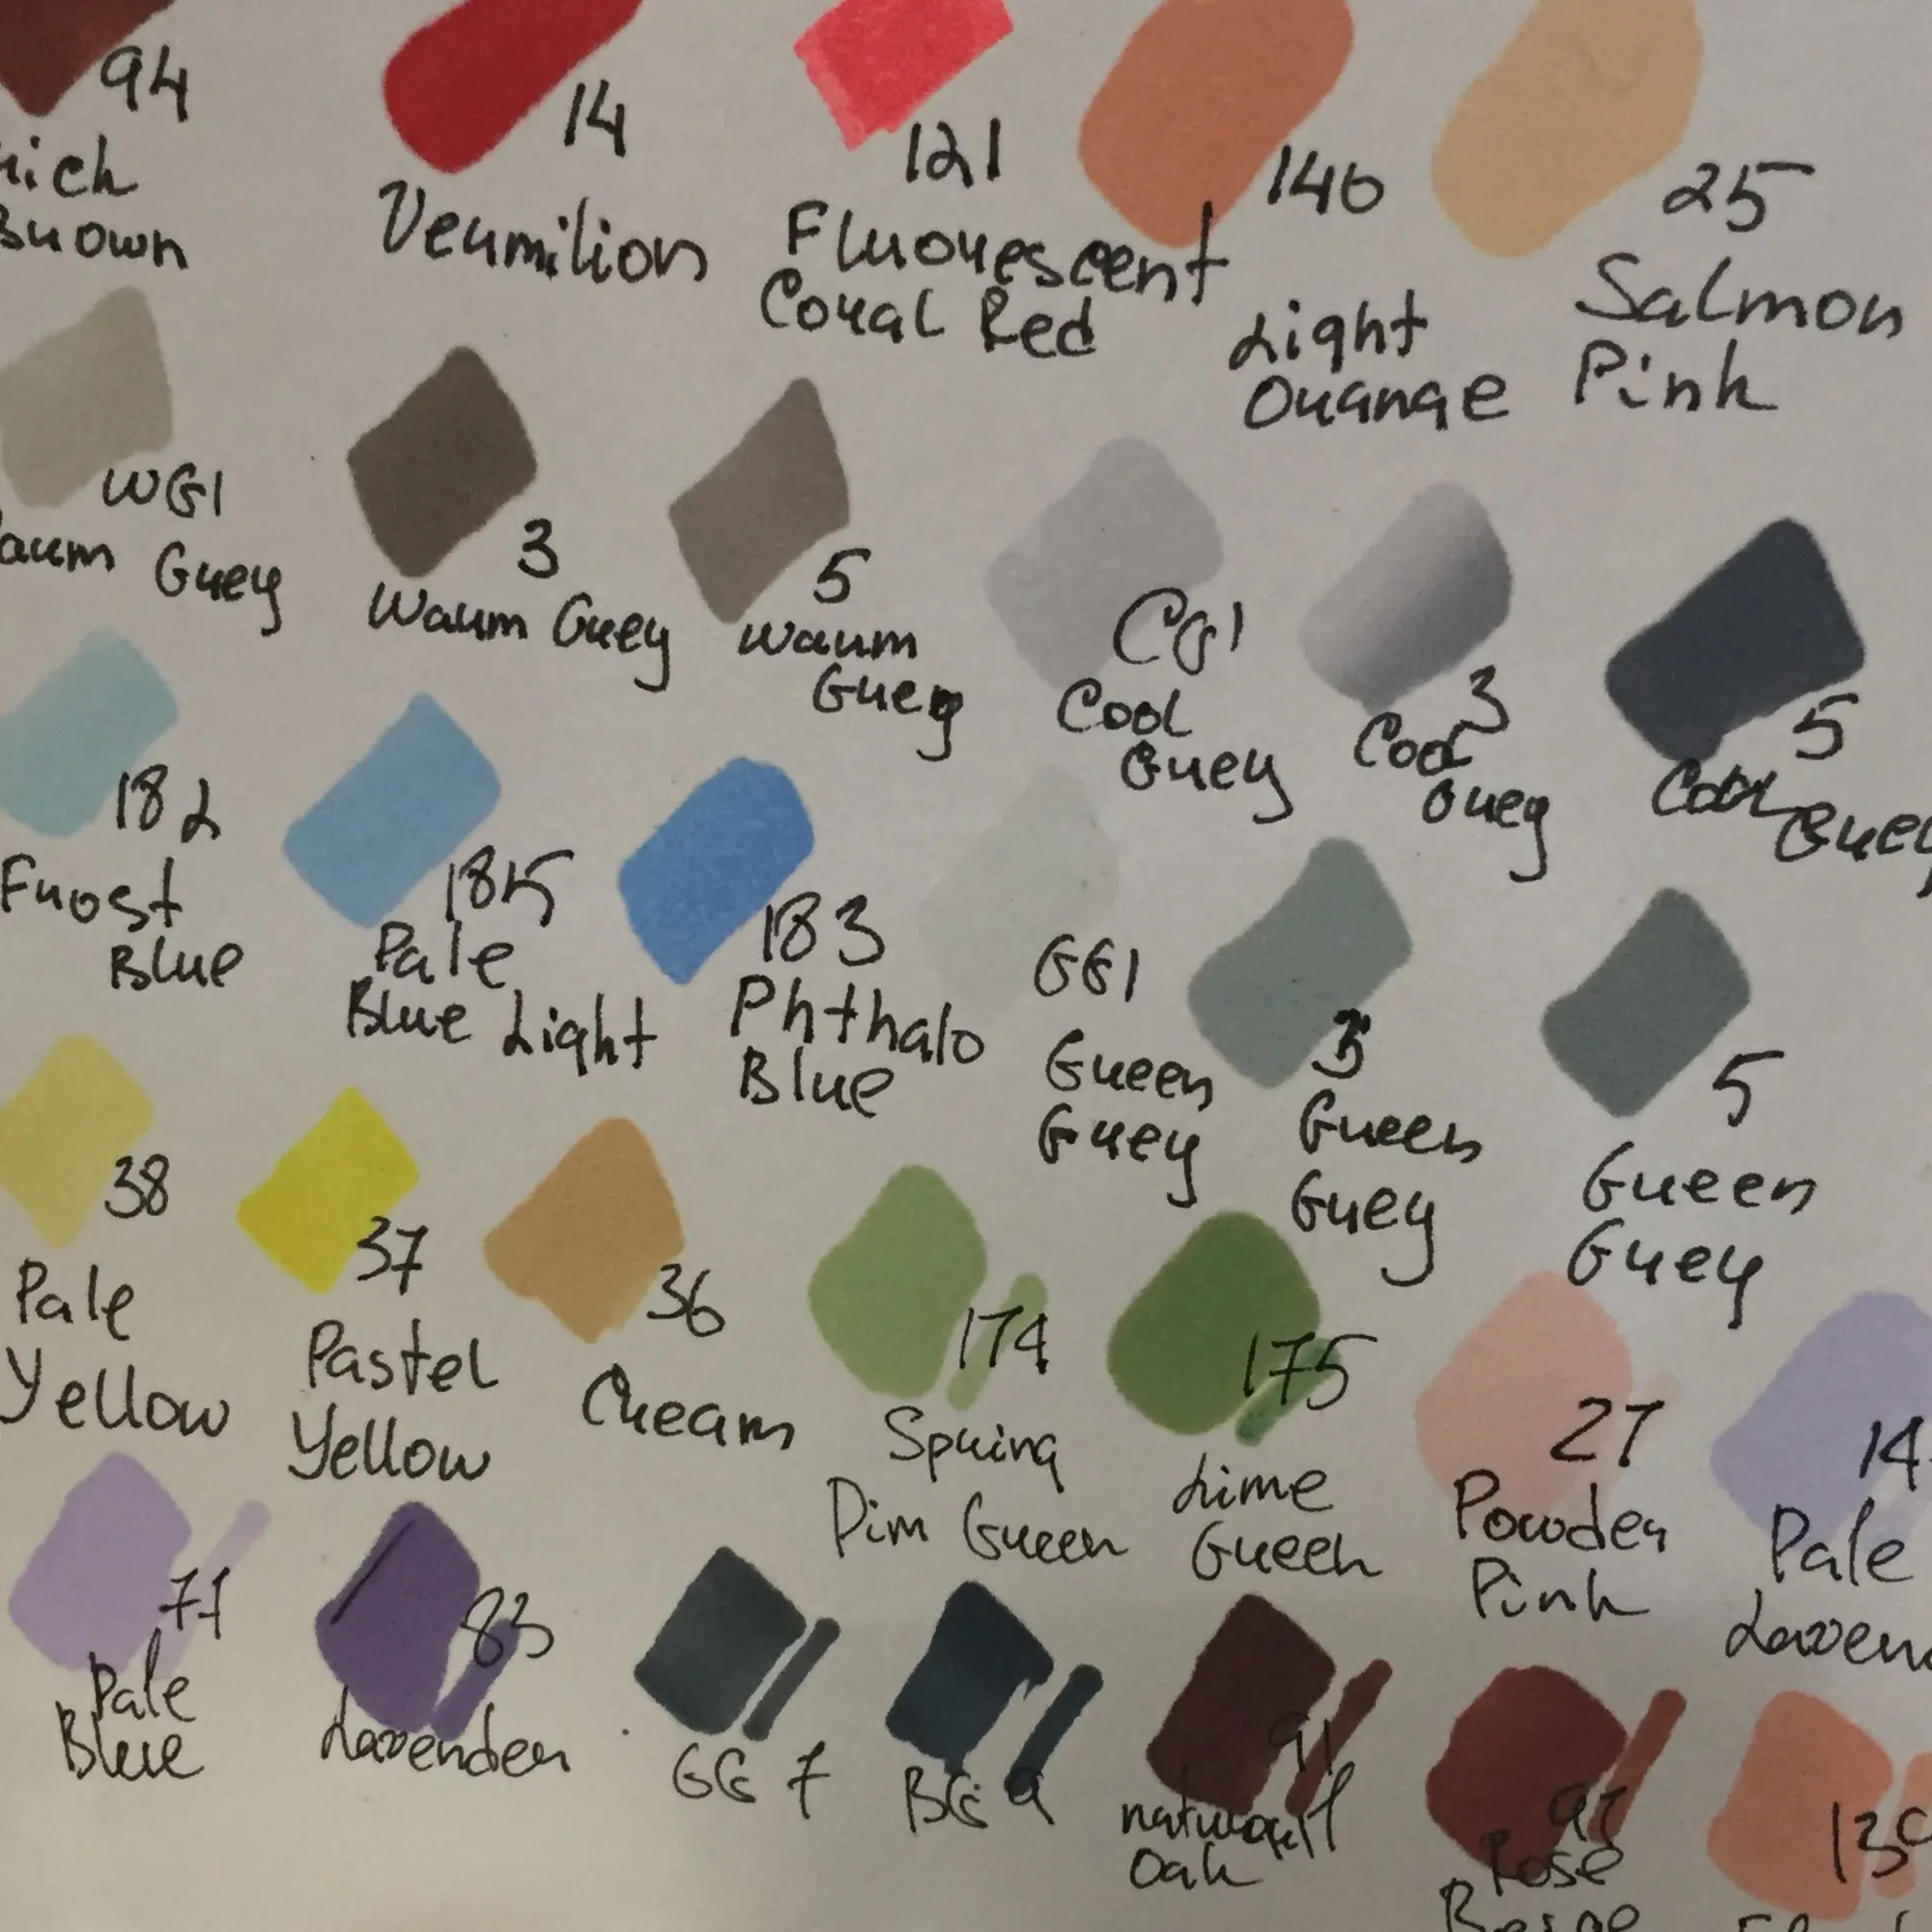 94
Rich
Brown
14
Vermilion
121
Fluorescent
Coral Red
140
Light
Orange
25
Salmon
Pink
WG1
Warm Grey
3
Warm Grey
5
Warm
Grey
CG1
Cool
Grey
3
Cool
Grey
5
Cool
Grey
182
Frost
Blue
185
Pale
Blue Light
183
Phthalo
Blue
GG1
Green
Grey
3
Green
Grey
5
Green
Grey
38
Pale
Yellow
37
Pastel
Yellow
36
Cream
174
Spring
Dim Green
175
Lime
Green
27
Powder
Pink
14
Pale
Laven
77
Pale
Blue
83
Lavender
GG 7
BG 9
91
natural
Oak
Rose
Beige
139